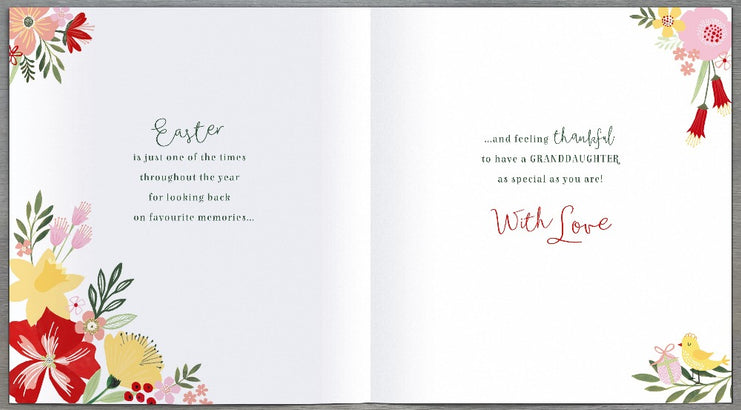 Easter
is just one of the times
throughout the year
for looking back
on favourite memories...
...and feeling thankful
to have a GRANDDAUGHTER
as special as you are!
With Love